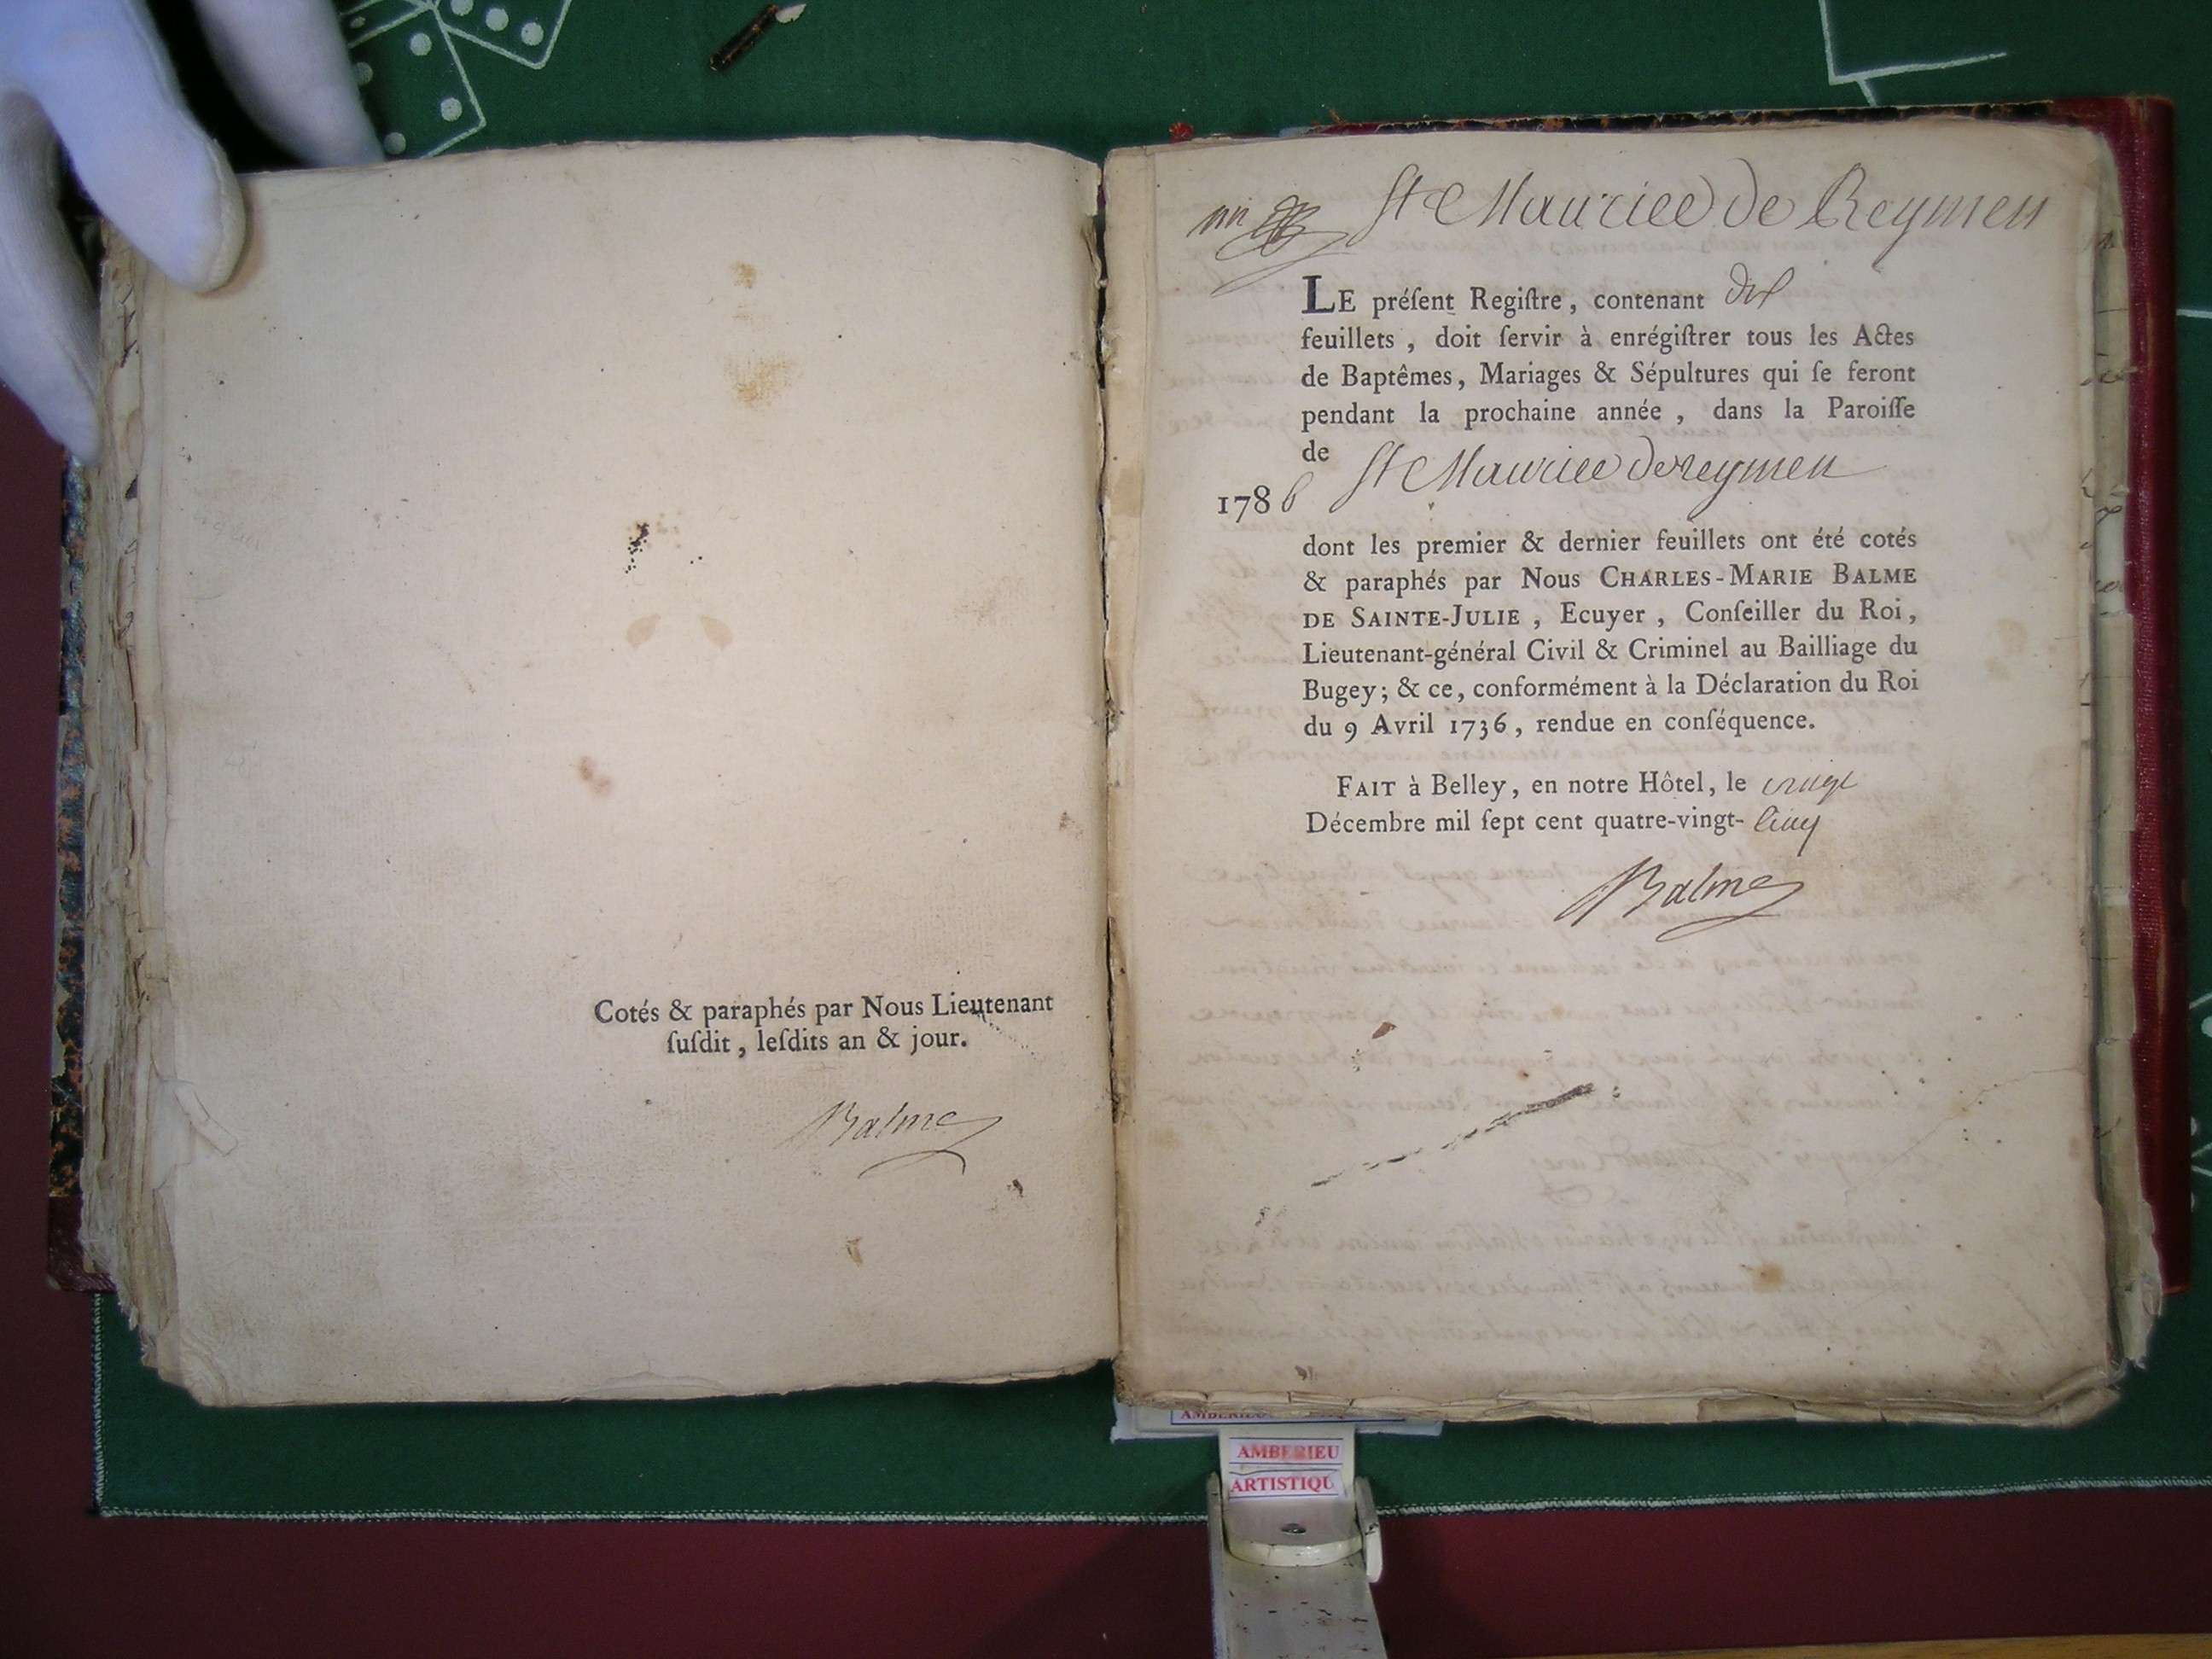 Cotés & paraphés par Nous Lieutenant
ſuſdit, leſdits an & jour.
Balme
St Maurice de Reymen
LE préſent Regiſtre, contenant dix
feuillets, doit ſervir à enrégiſtrer tous les Actes
de Baptêmes, Mariages & Sépultures qui ſe feront
pendant la prochaine année, dans la Paroiſſe
de St Maurice de reymen
1786
dont les premier & dernier feuillets ont été cotés
& paraphés par Nous CHARLES-MARIE BALME
DE SAINTE-JULIE, Ecuyer, Conſeiller du Roi,
Lieutenant-général Civil & Criminel au Bailliage du
Bugey; & ce, conformément à la Déclaration du Roi
du 9 Avril 1736, rendue en conſéquence.
FAIT à Belley, en notre Hôtel, le
Décembre mil ſept cent quatre-vingt-cinq
Balme
AMBERIEU
ARTISTIQU